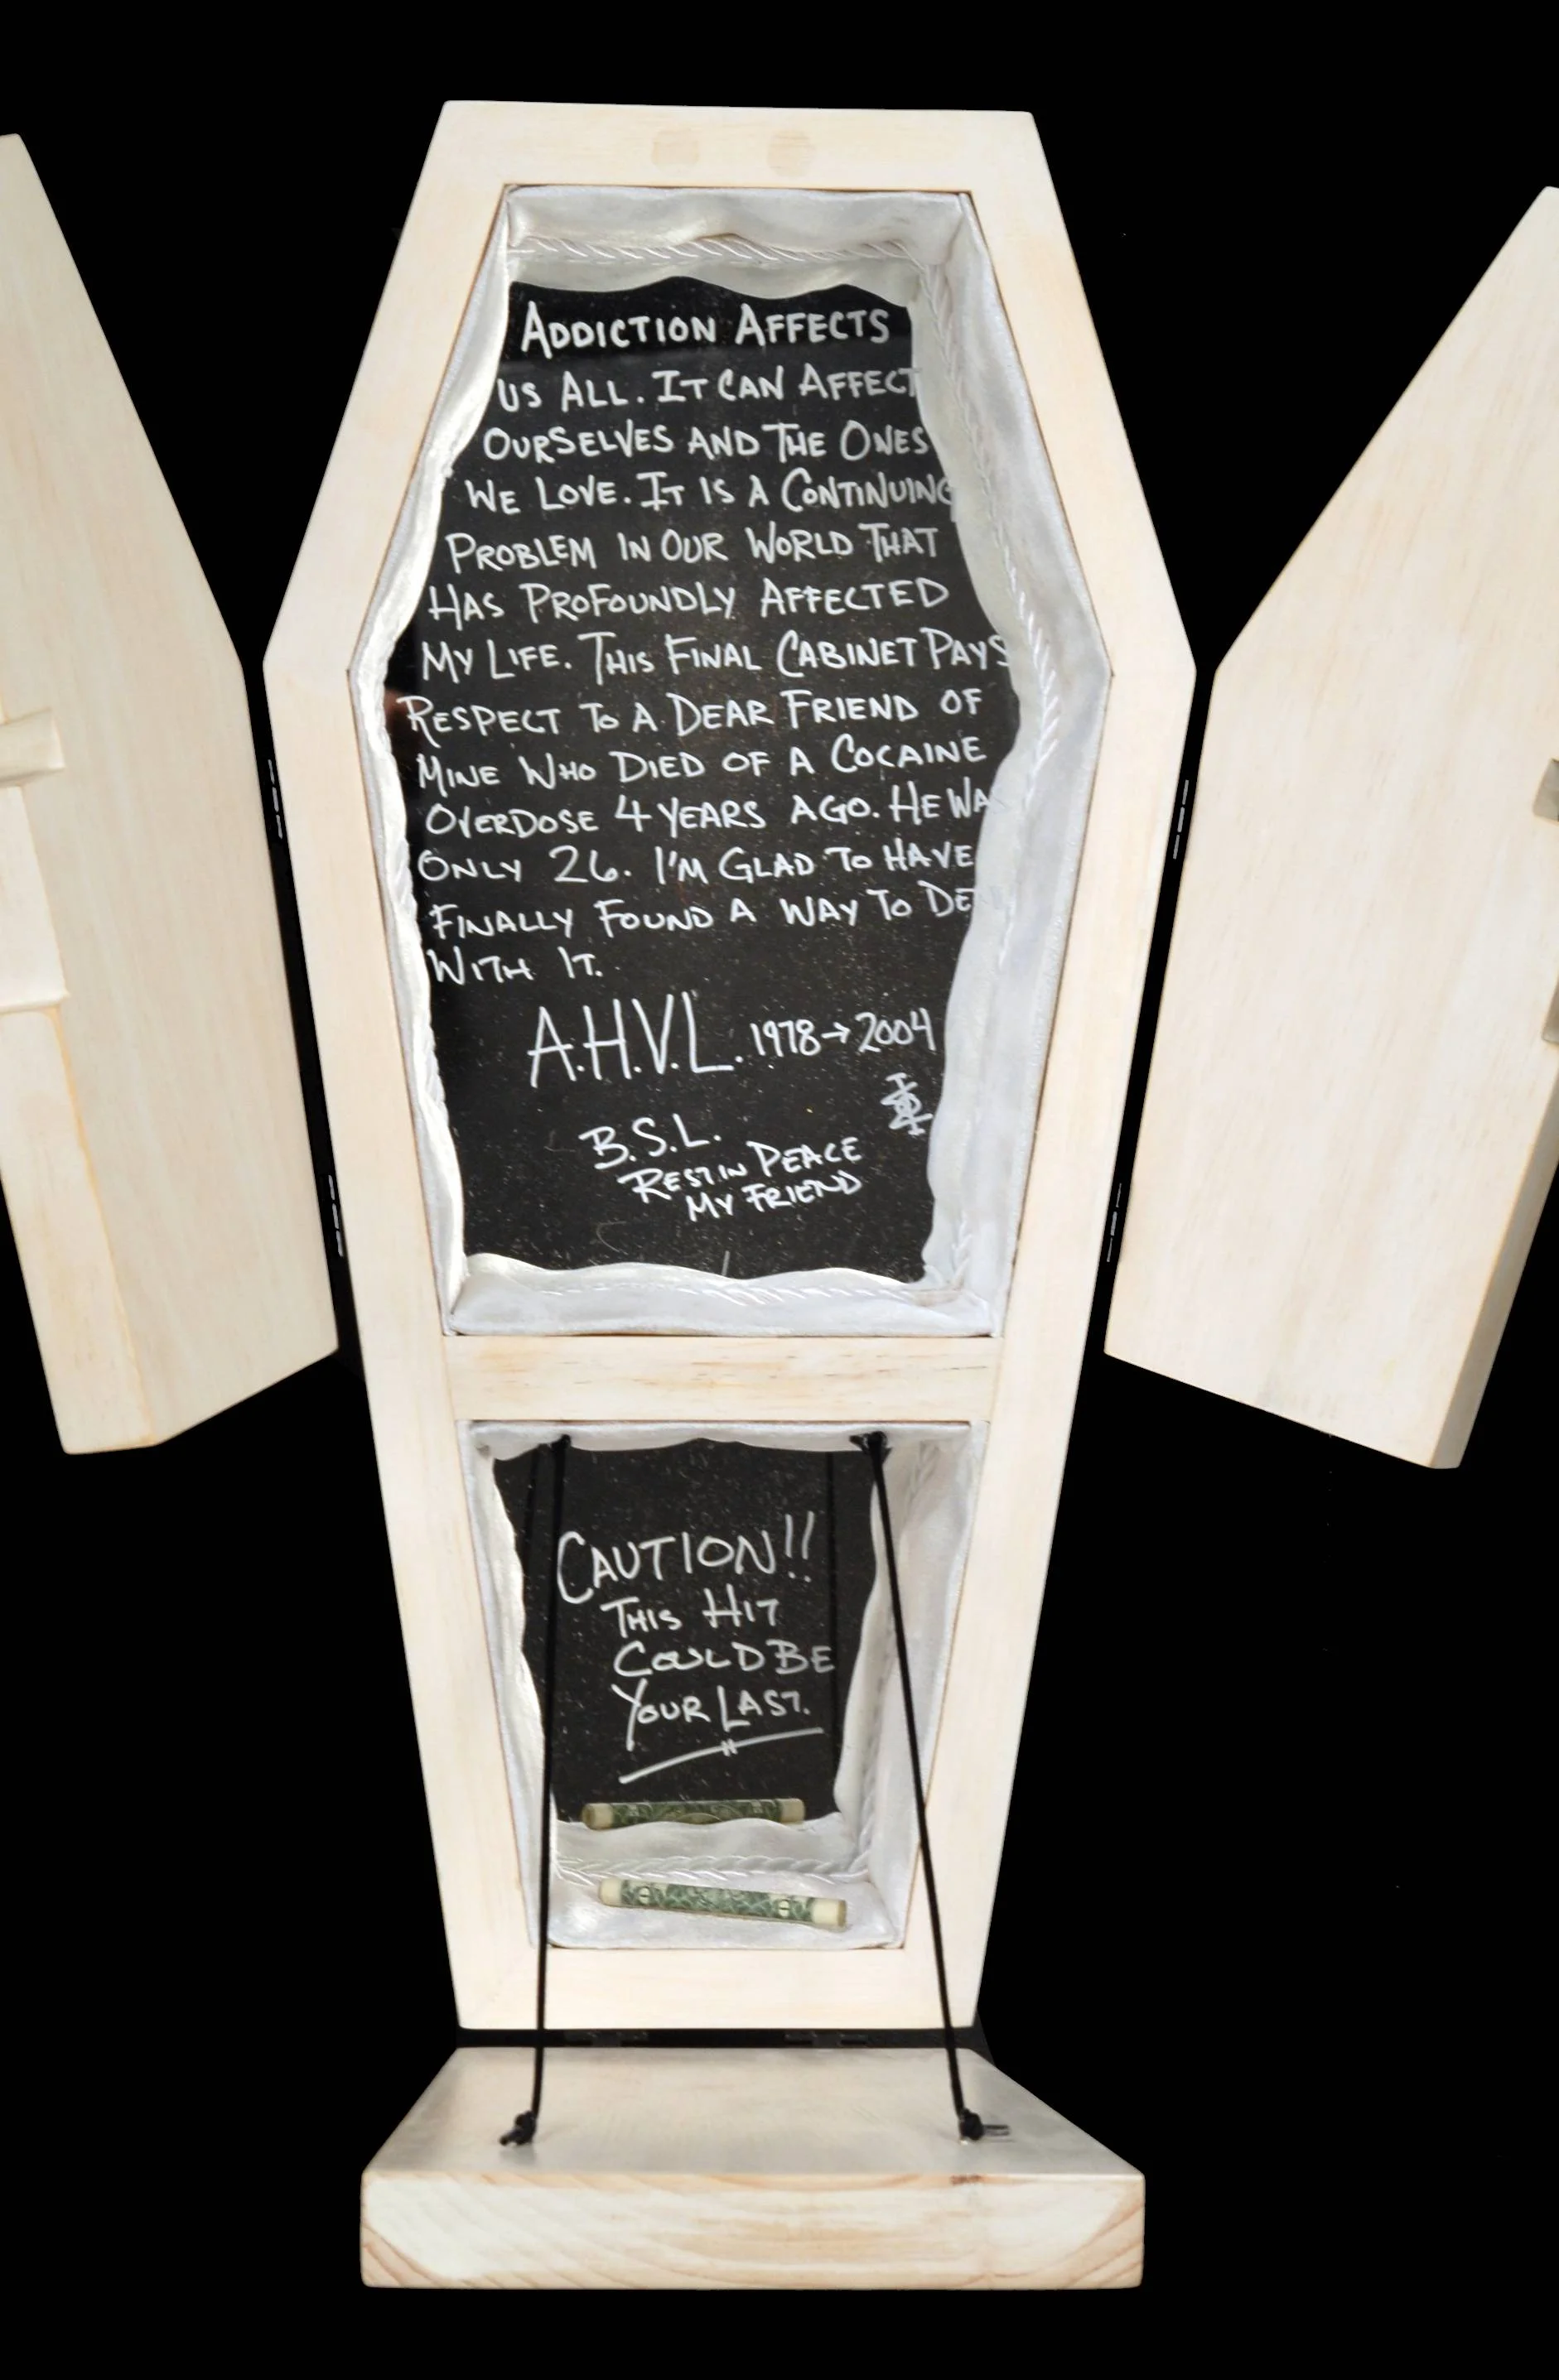 ADDICTION AFFECTS
US ALL. IT CAN AFFECT
OURSELVES AND THE ONES
WE LOVE. IT IS A CONTINUING
PROBLEM IN OUR WORLD THAT
HAS PROFOUNDLY AFFECTED
MY LIFE. THIS FINAL CABINET PAYS
RESPECT TO A DEAR FRIEND OF
MINE WHO DIED OF A COCAINE
OVERDOSE 4 YEARS AGO. HE WA
ONLY 26. I'M GLAD TO HAVE
FINALLY FOUND A WAY TO DE
WITH IT.
A.H.V.L. 1978→2004
B.S.L.
REST IN PEACE
MY FRIEND
CAUTION!!
THIS HIT
COULD BE
YOUR LAST.